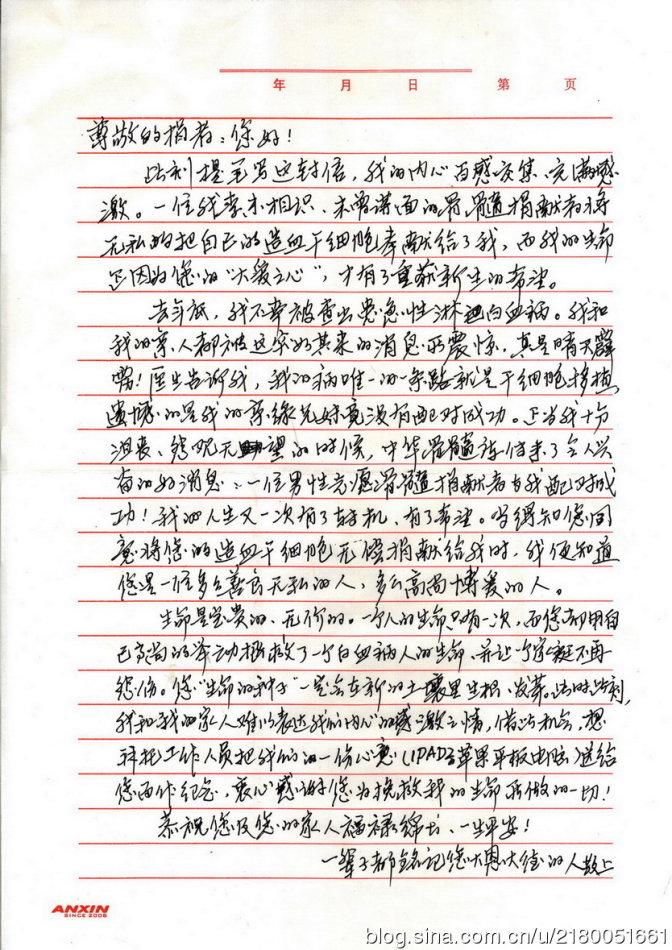 年 月 日 第 页
尊敬的捐者：您好！
此刻提笔写这封信，我的内心百感交集、充满感
激。一位我素未相识、未曾谋面的骨髓捐献者将
无私的把自己的造血干细胞奉献给了我，而我的生命
正因为您的“大爱之心”，才有了重获新生的希望。
去年底，我不幸被查出患急性淋巴白血病。我和
我的家人都被这突如其来的消息所震惊，真是晴天霹
雳！医生告诉我，我的病唯一的一条路就是干细胞移植，
遗憾的是我的亲缘兄妹竟没有配对成功。正当我十分
沮丧、绝望的时候，中华骨髓 传来了令人兴
奋的好消息：一位男性志愿骨髓捐献者与我配对成
功！我的人生又一次有了转机、有了希望。当得知您同
意将您的造血干细胞无偿捐献给我时，我便知道
您是一位多么善良无私的人，多么高尚博爱的人。
生命是宝贵的、无价的。一个人的生命只有一次，而您却用自
己高尚的举动拯救了一个白血病人的生命、并让一个家庭不再
悲伤。您“生命的种子”一定会在新的土壤里生根、发芽。此时此刻，
我和我的家人难以表达我们内心的感激之情，借此机会，想
拜托工作人员把我们的一份心意（IPAD3苹果平板电脑）送给
您留作纪念，衷心感谢您为挽救我的生命所做的一切！
恭祝您及您的家人福禄绵长、一生平安！
一辈子都铭记您大恩大德的人敬上
ANXIN
SINCE 2006
blog.sina.com.cn/u/2180051661